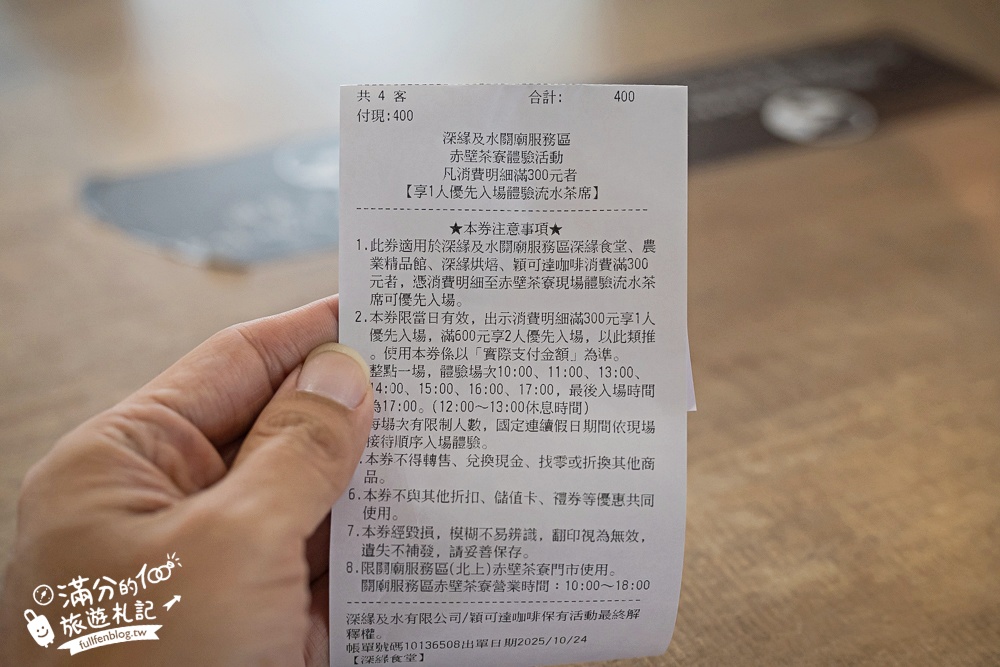 共 4 客 合計: 400
付現:400
深緣及水關廟服務區
赤壁茶寮體驗活動
凡消費明細滿300元者
【享1人優先入場體驗流水茶席】
★本券注意事項★
1.此券適用於深緣及水關廟服務區深緣食堂、農
業精品館、深緣烘焙、穎可達咖啡消費滿300
元者，憑消費明細至赤壁茶寮現場體驗流水茶
席可優先入場。
2.本券限當日有效，出示消費明細滿300元享1人
優先入場，滿600元享2人優先入場，以此類推
。使用本券係以「實際支付金額」為準。
整點一場，體驗場次10:00、11:00、13:00、
14:00、15:00、16:00、17:00，最後入場時間
為17:00。(12:00～13:00休息時間)
每場次有限制人數，國定連續假日期間依現場
接待順序入場體驗。
.本券不得轉售、兌換現金、找零或折換其他商
品。
6.本券不與其他折扣、儲值卡、禮券等優惠共同
使用。
7.本券經毀損，模糊不易辨識，翻印視為無效，
遺失不補發，請妥善保存。
8.限關廟服務區(北上)赤壁茶寮門市使用。
關廟服務區赤壁茶寮營業時間：10:00～18:00
深緣及水有限公司/穎可達咖啡保有活動最終解
釋權。
帳單號碼10136508出單日期2025/10/24
【深緣食堂】
滿分的100
旅遊札記
fullfenblog.tw